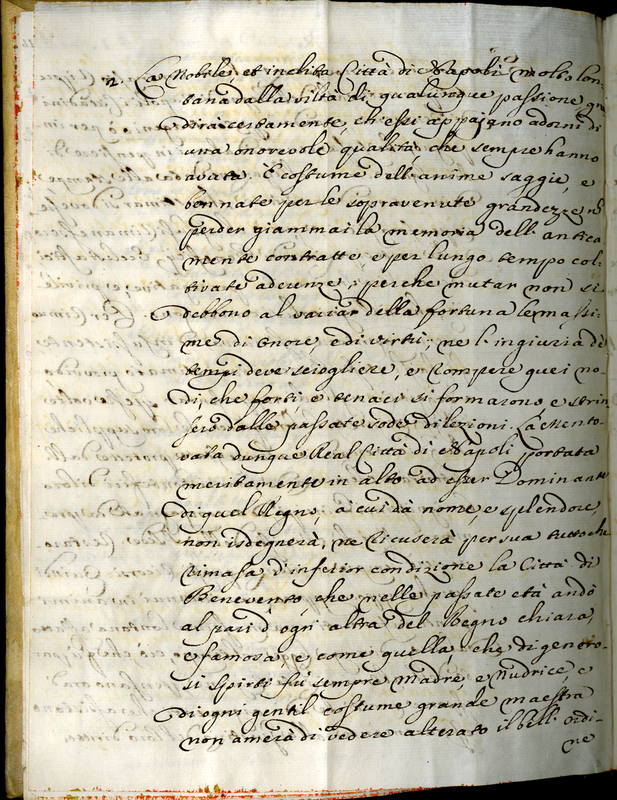 2. La Nobile, et inclita Città di Napoli molto lon
tana dalla viltà di qualunque passione
dirà certamente, ch'essi appajono adorni di
una onorevole qualità, che sempre hanno
avata. È costume dell'anime saggie, e
ben nate per le sopravenute grandezze, non
perder giammai la memoria dell'antica
mente contratte e per lungo tempo col
tivate aderenze; perche mutar non si
debbono al variar della fortuna le massi
me di onore, e di virtù; ne l'ingiuria de
tempi deve sciogliere, e rompere quei no-
di, che forti, e tenaci si formarono e strin
sero dalle passate sode dilezioni. La mento-
vata dunque Real Città di Napoli portata
meritamente in alto ad esser Dominante
di quel Regno, a cui dà nome, e splendore,
non isdegnerà, ne ricuserà per sua tuttoche
rimasa d'inferior condizione la Città di
Benevento, che nelle passate età andò
al pari d'ogni altra del Regno chiara,
e famosa, e come quella che di genero-
si spirti fù sempre madre, e nudrice, e
di ogni gentil costume grande maestra
non amerà di vedere alterato il bell'ordi-
ne